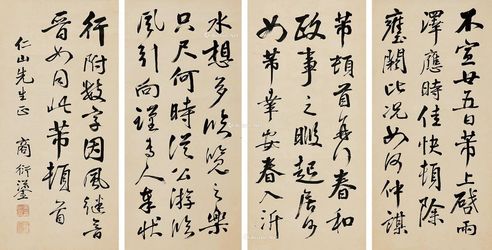 不宣廿五日芾上啟雨
澤應時佳快頓除
壅閼此況如何仲謀
芾頓首春和
政事之暇起居何
如芾輩安春入沂
水想多臨覽之樂
只尺何時從公游臨
風引向謹專人奉狀
行附數字因風繼音
晉如同此芾頓首
仁山先生正 商衍鎏